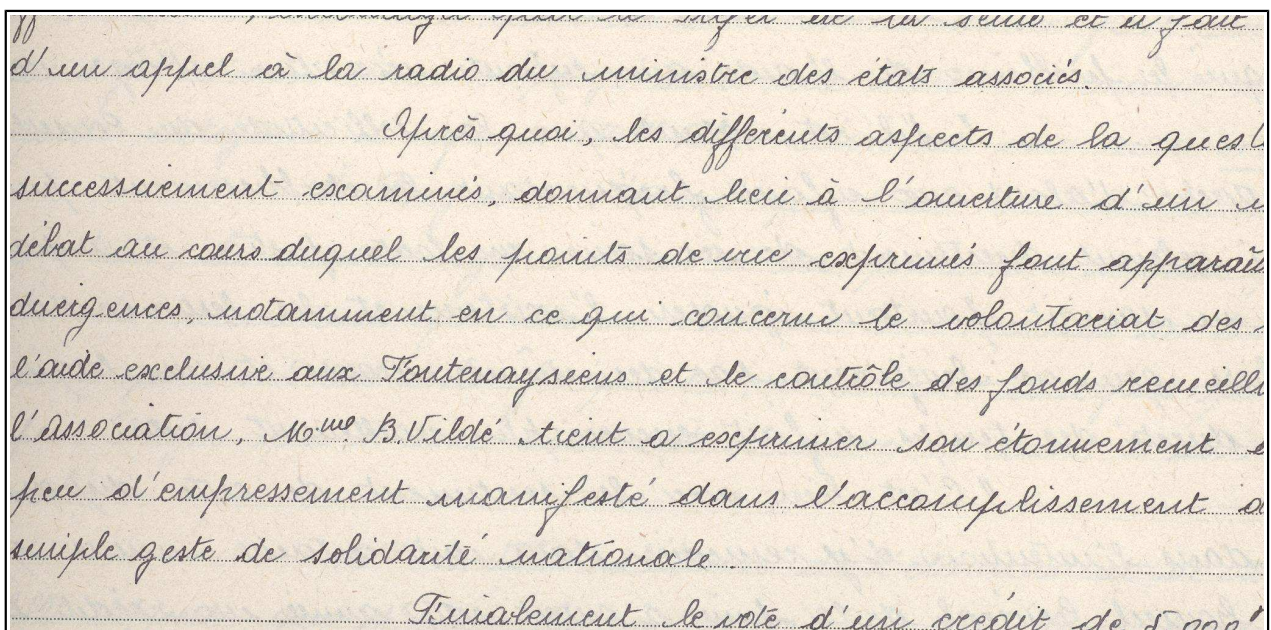 et il fait
d'un appel à la radio du ministre des états associés.
Après quoi, les différents aspects de la quest
successivement examinés, donnant lieu à l'ouverture d'un
débat au cours duquel les points de vue exprimés font apparaî
divergences, notamment en ce qui concerne le volontariat des
l'aide exclusive aux Fontenaysiens et le contrôle des fonds recueilli
l'association, Mme B. Vildé tient a exprimer son étonnement
peu d'empressement manifesté dans l'accomplissement d
simple geste de solidarité nationale.
Finalement le vote d'un crédit de 5.000